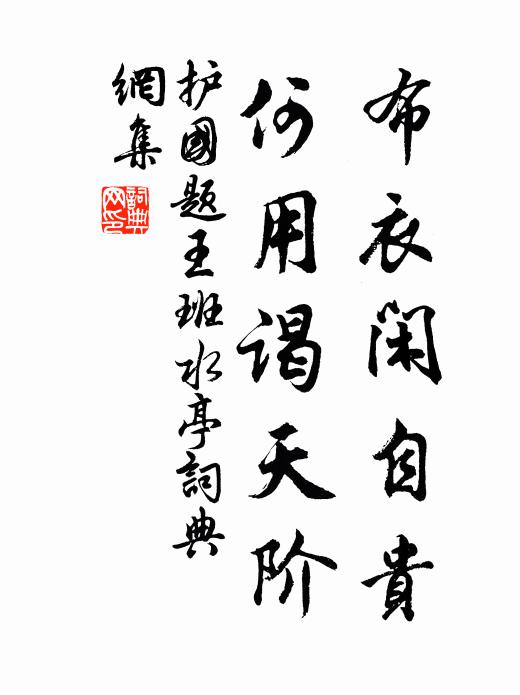 布衣闲自貴
何用谒天阶
护國題王班水亭詞典
網集
詞典
网印